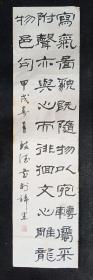 寫氣圖貌既隨物以宛轉屬采
附聲亦與心而徘徊文心雕龍
物色句 甲戌